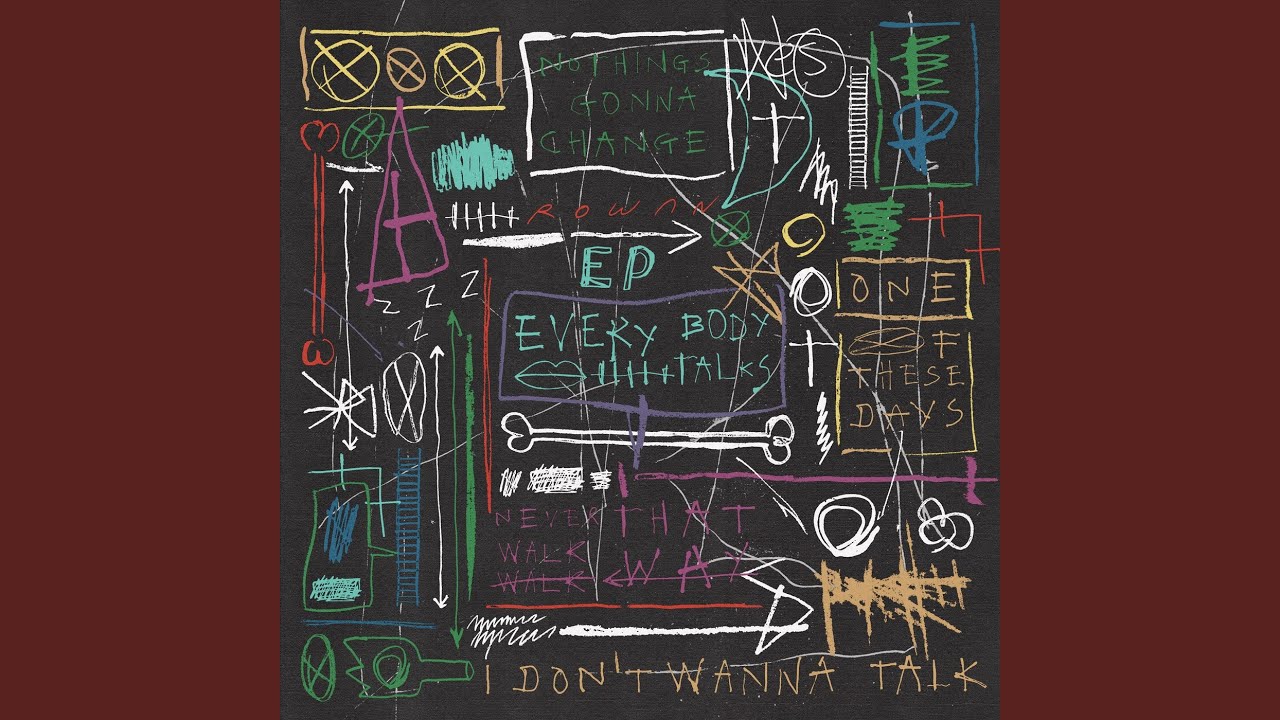 NOTHINGS
GONNA
CHANGE
ROWAN
EP
EVERY BODY
TALKS
ONE
OF
THESE
DAYS
NEVER THAT
WALK
WALK WAY
I DON'T WANNA TALK
Z
Z
Z
Z